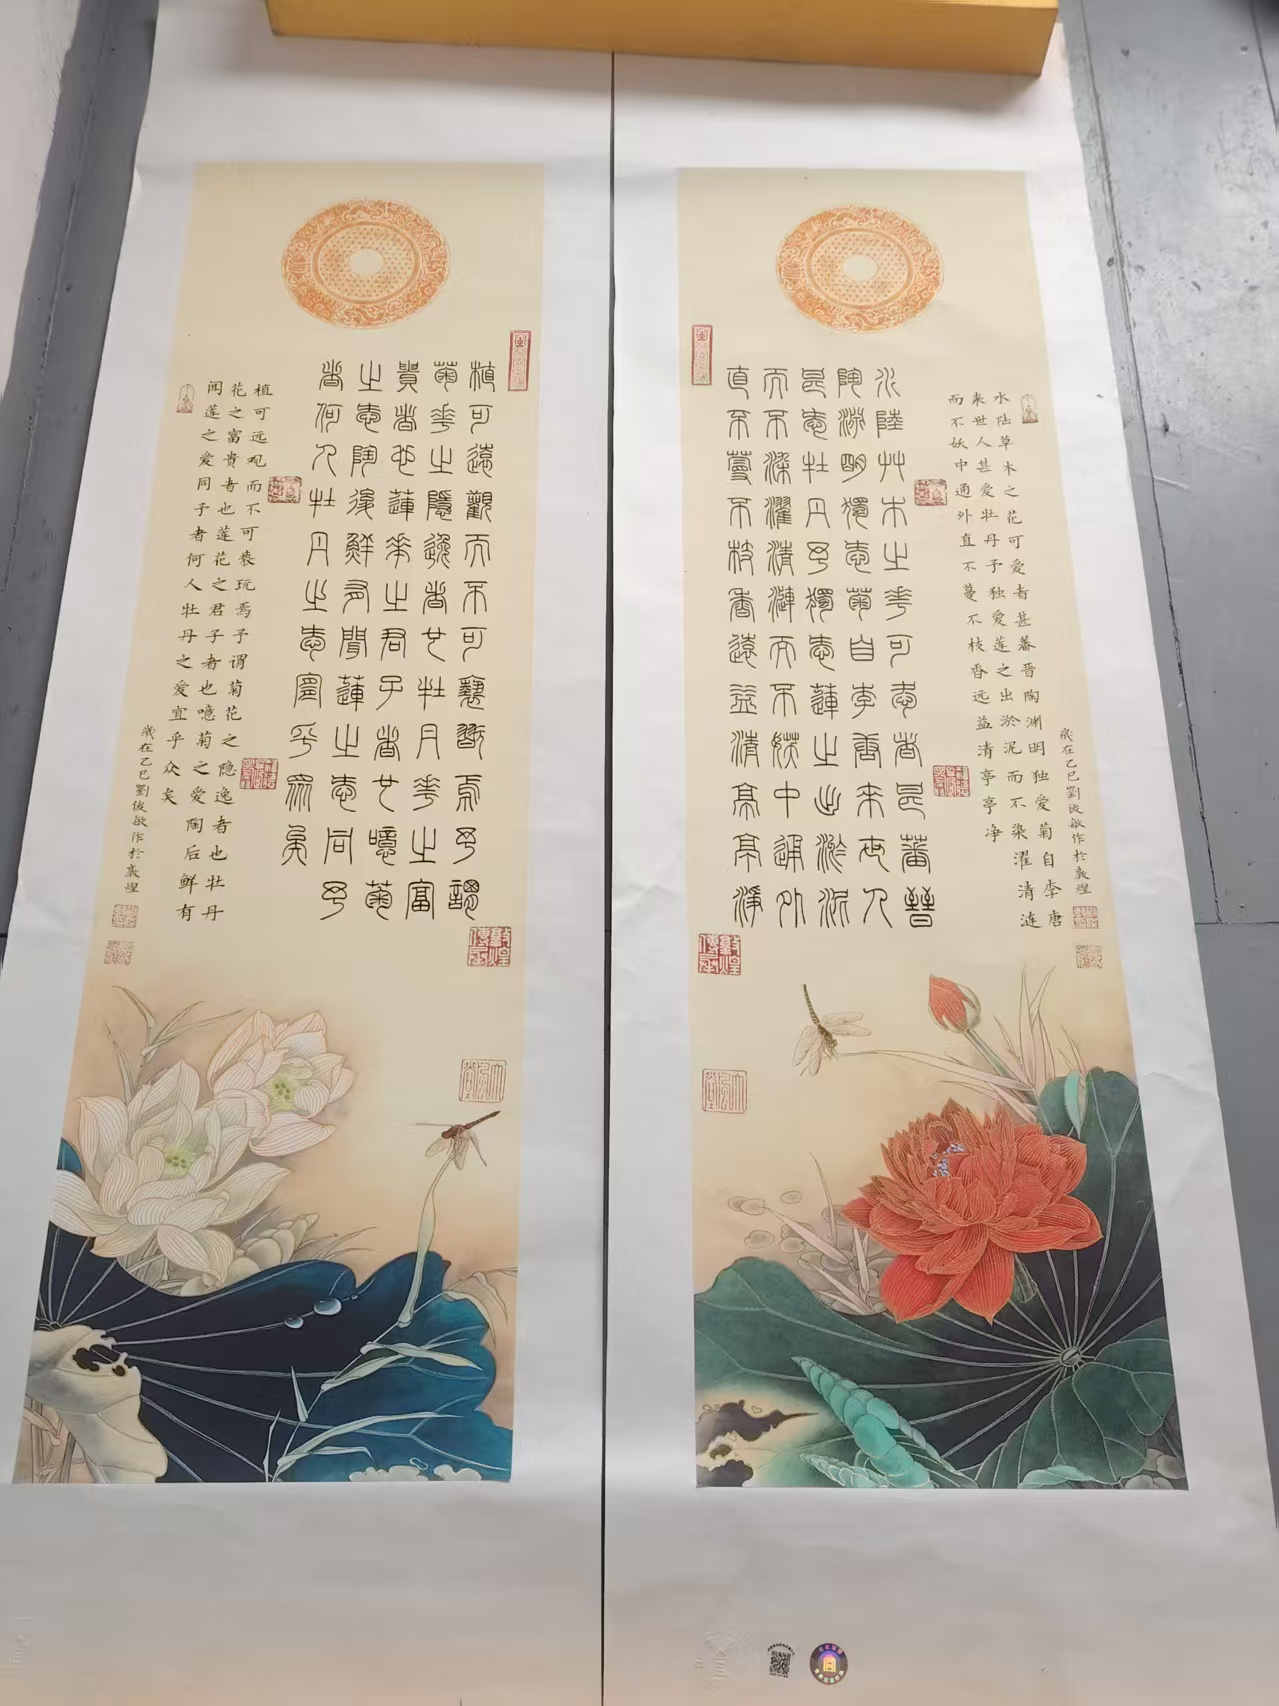 歲在乙巳劉俊敏作於敦煌
水陆草木之花可爱者甚蕃晋陶渊明独爱菊自李唐
来世人甚爱牡丹予独爱莲之出淤泥而不染濯清涟
而不妖中通外直不蔓不枝香远益清亭亭净
水陸艸木之華可愛者甚蕃晉
陶淵明獨愛菊自李唐來世人
甚愛牡丹予獨愛蓮之出淤泥
而不染濯清漣而不妖中通外
直不蔓不枝香遠益清亭亭淨
敦煌傳承
植可遠觀而不可褻翫焉予謂
菊華之隱逸者也牡丹華之富
貴者也蓮華之君子者也噫菊
之愛陶後鮮有聞蓮之愛同予
者何人牡丹之愛宜乎眾矣
敦煌傳承
植可远观而不可亵玩焉予谓菊花之隐逸者也牡丹
花之富贵者也莲花之君子者也噫菊之爱陶后鲜有
闻莲之爱同予者何人牡丹之爱宜乎众矣
歲在乙巳劉俊敏作於敦煌